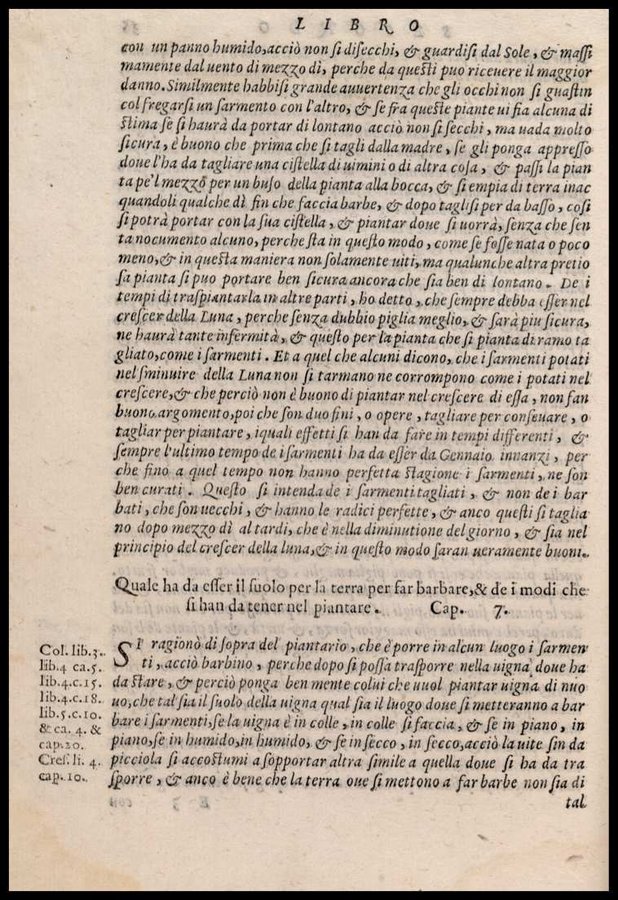 LIBRO
con un panno humido, acciò non si disecchi, & guardisi dal Sole, & massi
mamente dal uento di mezzo dì, perche da questi puo riceuere il maggior
danno. Similmente habbisi grande auuertenza che gli occhi non si guastin
col fregarsi un sarmento con l'altro, & se fra queste piante ui sia alcuna di
stima se si haurà da portar di lontano acciò non si secchi, ma uada molto
sicura, è buono che prima che si tagli dalla madre, se gli ponga appresso
doue l'ha da tagliare una cistella di uimini o di altra cosa, & passi la pian
ta pe'l mezzo per un buso della pianta alla bocca, & si empia di terra inac
quandoli qualche dì fin che faccia barbe, & dopo taglisi per da basso, così
si potrà portar con la sua cistella, & piantar doue si uorrà, senza che sen
ta nocumento alcuno, perche sta in questo modo, come se fosse nata o poco
meno, & in questa maniera non solamente uiti, ma qualunche altra pretio
sa pianta si puo portare ben sicura ancora che sia ben di lontano. De i
tempi di traspiantarla in altre parti, ho detto, che sempre debba esser nel
crescer della Luna, perche senza dubbio piglia meglio, & sarà piu sicura,
ne haurà tante infermità, & questo per la pianta che si pianta di ramo ta
gliato, come i sarmenti. Et a quel che alcuni dicono, che i sarmenti potati
nel sminuire della Luna non si tarmano ne corrompono come i potati nel
crescere, & che perciò non è buono di piantar nel crescere di essa, non fan
buono argomento, poi che son duo fini, o opere, tagliare per conseuare, o
tagliar per piantare, i quali effetti si han da fare in tempi differenti, &
sempre l'ultimo tempo de i sarmenti ha da esser da Gennaio innanzi, per
che fino a quel tempo non hanno perfetta stagione i sarmenti, ne son
ben curati. Questo si intenda de i sarmenti tagliati, & non de i bar
bati, che son uecchi, & hanno le radici perfette, & anco questi si taglia
no dopo mezzo dì al tardi, che è nella diminutione del giorno, & sia nel
principio del crescer della luna, & in questo modo saran ueramente buoni.
Quale ha da esser il suolo per la terra per far barbare, & de i modi che
si han da tener nel piantare. Cap. 7.
Col. lib.3.
lib.4 ca.5.
lib.4.c.15.
lib.4.c.18.
lib.5.c.10.
& ca. 4. &
cap.20.
Cres. li. 4.
cap. 10.
SI ragionò di sopra del piantario, che è porre in alcun luogo i sarmen
ti, acciò barbino, perche dopo si possa trasporre nella uigna doue ha
da stare, & perciò ponga ben mente colui che uuol piantar uigna di nuo
uo, che tal sia il suolo della uigna qual sia il luogo doue si metteranno a bar
bare i sarmenti, se la uigna è in colle, in colle si faccia, & se in piano, in
piano, se in humido, in humido, & se in secco, in secco, acciò la uite sin da
picciola si accostumi a sopportar altra simile a quella doue si ha da tra
sporre, & anco è bene che la terra oue si mettono a far barbe non sia di
tal